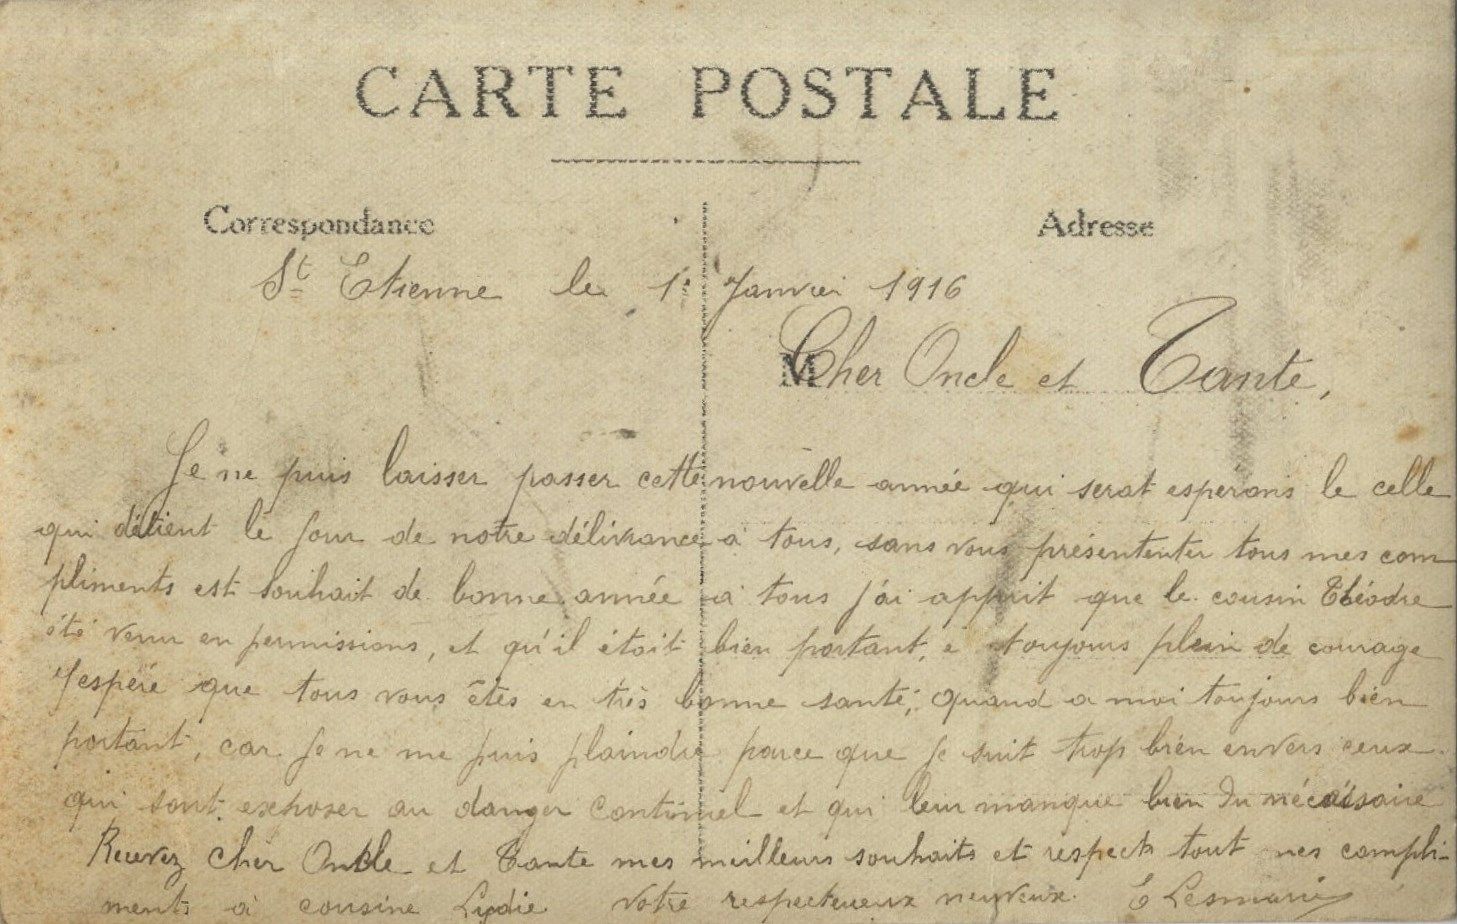 CARTE POSTALE
Correspondance
Adresse
St Etienne le 1e Janvier 1916
M
Cher Oncle et Tante,
Je ne puis laisser passer cette nouvelle année qui serat esperons le celle
qui détient le Jour de notre délivrance a tous, sans vous présententer tous mes com
pliments est souhait de bonne année a tous j'ai apprit que le cousin Théodre
été venu en permissions, et qu'il était bien portant, e toujours plein de courage
J'espére que tous vous êtes en très bonne santé; quand a moi toujours bien
portant, car je ne me puis plaindre parce que je suit trop bien envers ceux
qui sont exposer au danger continuel et qui leur manque bien du nécéssaire
Recevez Cher Oncle et Tante mes meilleurs souhaits et respects tout mes compli-
ments à cousine Lydie votre respectueux neuveux. E Lesmaris